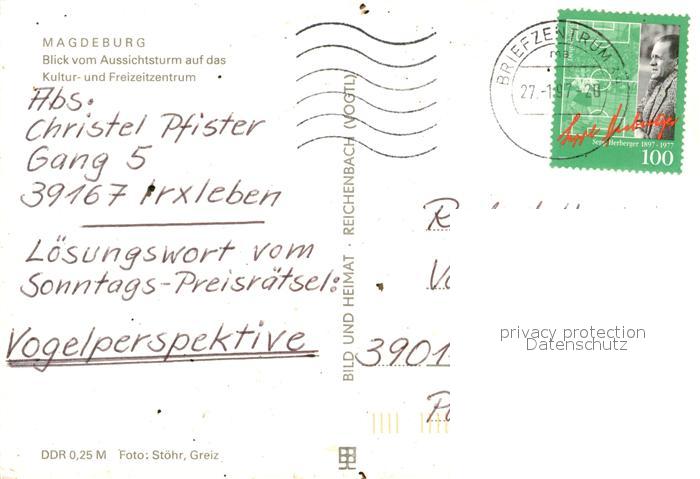 MAGDEBURG
Blick vom Aussichtsturm auf das
Kultur- und Freizeitzentrum
Abs.
Christel Pfister
Gang 5
39167 Irxleben
Lösungswort vom
Sonntags-Preisrätsel:
Vogelperspektive
DDR 0,25 M Foto: Stöhr, Greiz
BILD UND HEIMAT · REICHENBACH (VOGTL)
BRIEFZENTRUM
27.-1.97-20
Sepp Herberger
Sepp Herberger 1897-1977
100
3901
privacy protection
Datenschutz